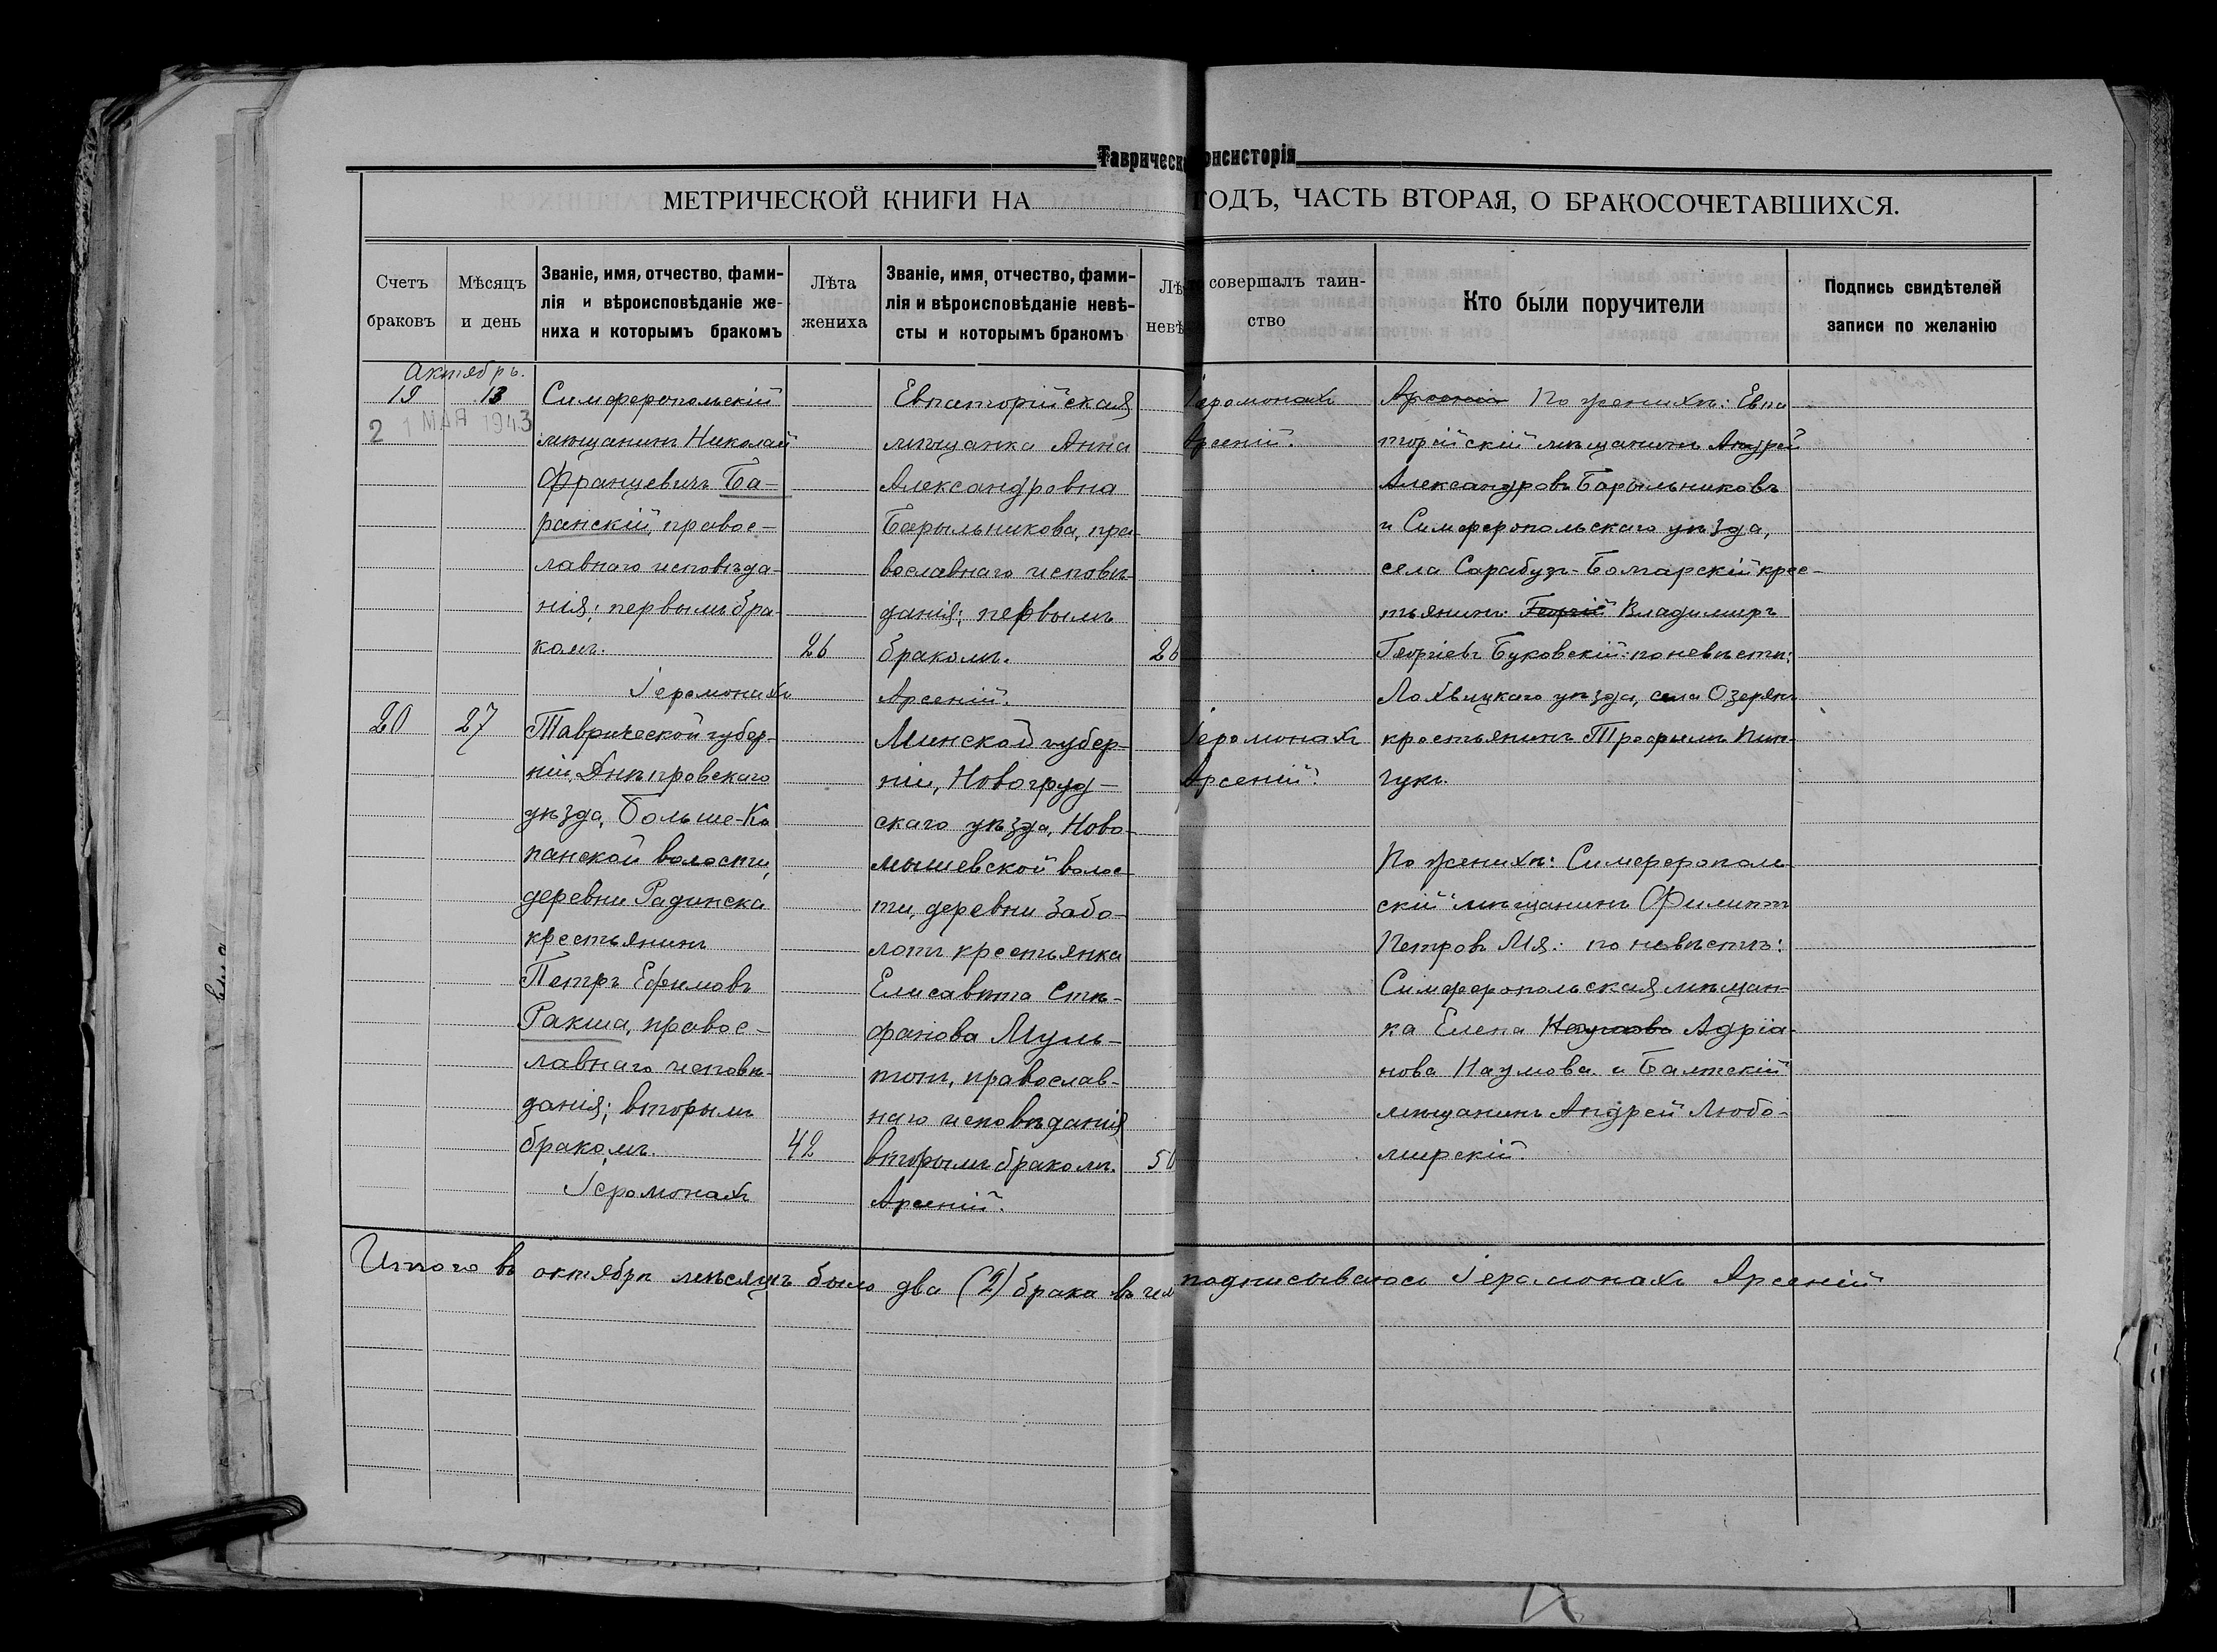 Таврическ онсисторія
МЕТРИЧЕСКОЙ КНИГИ НА ГОДЪ, ЧАСТЬ ВТОРАЯ, О БРАКОСОЧЕТАВШИХСЯ.
Счетъ
браковъ
Мѣсяцъ
и день
Званіе, имя, отчество, фами-
лія и вѣроисповѣданіе же-
ниха и которымъ бракомъ
Лѣта
жениха
Званіе, имя, отчество, фами-
лія и вѣроисповѣданіе невѣ-
сты и которымъ бракомъ
Лѣ
невѣ
совершалъ таин-
ство
Кто были поручители
Подпись свидѣтелей
записи по желанію
Актябрь.
19
13
2 1 МАЯ 1943
Симферопольскій
мѣщанинъ Николай
Францевичъ Ба-
ранскій, правос-
лавнаго исповѣда-
нія; первымъ бра-
комъ.
26
Іеромонахъ
Евпаторійская
мѣщанка Анна
Александровна
Барыльникова, пра-
вославнаго исповѣ-
данія; первымъ
бракомъ.
26
Арсеній.
Іеромонахъ
Арсеній.
Арсеній По женихѣ: Евпа
торійскій мѣщанинъ Андрей
Александровъ Барыльниковъ
и Симферопольскаго уѣзда,
села Сарабузъ-Болгарскій крес-
тьянинъ Георгій Владимиръ
Георгіевъ Буковскій: по невѣстѣ:
Лохвицкаго уѣзда, села Озерянъ
крестьянинъ Трофимъ Пин-
чукъ.
20
27
Таврической губер-
ніи, Днѣпровскаго
уѣзда, Больше-Ко
панской волости,
деревни Раденска
крестьянинъ
Петръ Ефимовъ
Ракша, правос-
лавнаго исповѣ-
данія; вторымъ
бракомъ.
42
Іеромонахъ
Минской губер-
ніи, Новогруд-
скаго уѣзда, Ново-
мышевской волос-
ти, деревни Забо-
лоть крестьянка
Елисавета Сте-
фанова Муль-
тонъ, православ-
наго исповѣданія
вторымъ бракомъ.
50
Арсеній.
Іеромонахъ
Арсеній.
По женихѣ: Симферополь
скій мѣщанинъ Филиппъ
Петровъ Мя: по невѣстѣ:
Симферопольская мѣщан-
ка Елена Наумова Адріа-
нова Наумова и Балтскій
мѣщанинъ Андрей Любо-
мирскій.
Итого въ октябрѣ мѣсяцѣ было два (2) брака въ чем подписываюсь Іеромонахъ Арсеній